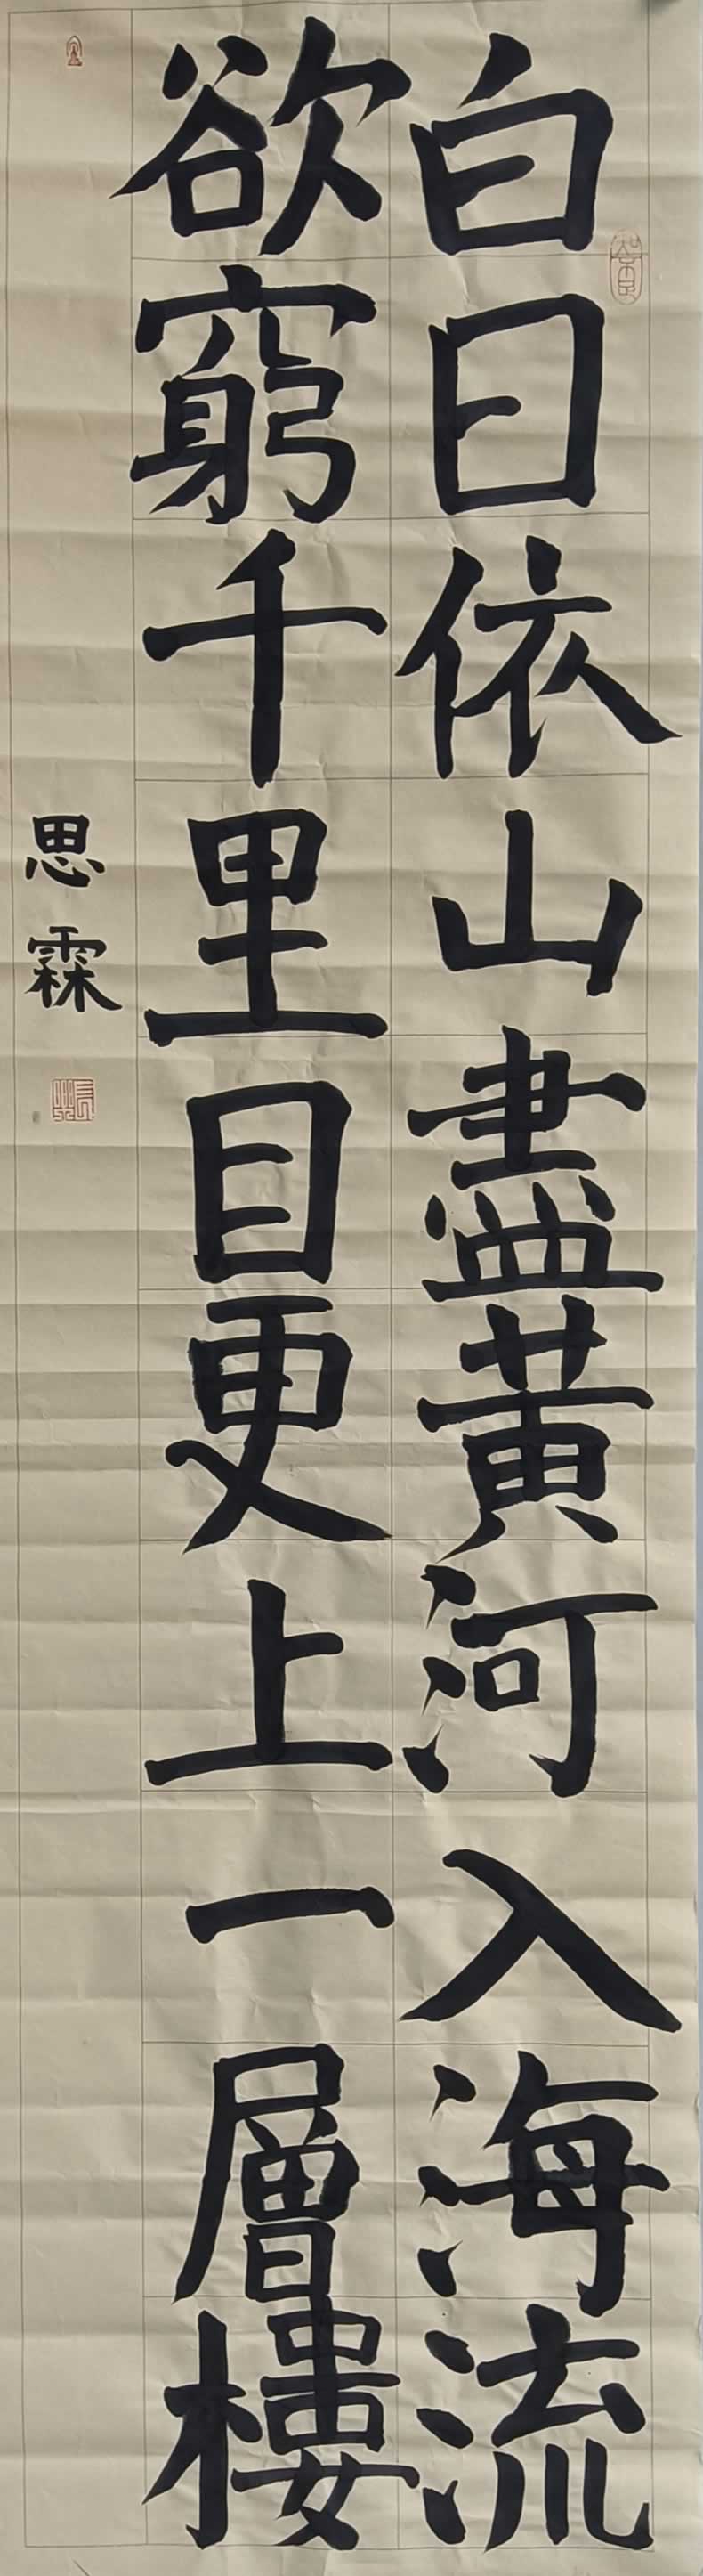 白日依山盡黃河入海流
欲窮千里目更上一層樓
思霖